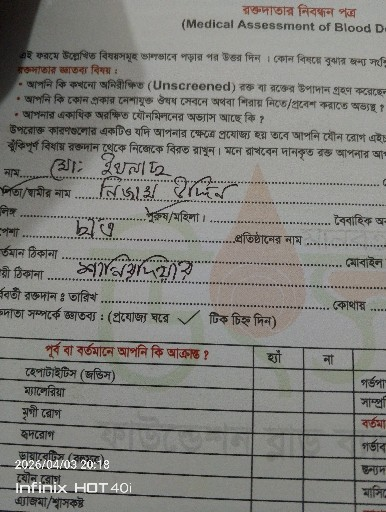 রক্তদাতার নিবন্ধন পত্র
(Medical Assessment of Blood D
এই ফরমে উল্লেখিত বিষয়সমূহ ভালভাবে পড়ার পর উত্তর দিন । কোন বিষয়ে বুঝার জন্য
রক্তদাতার জ্ঞাতব্য বিষয় :
• আপনি কি কখনো অনিরীক্ষিত (Unscreened) রক্ত বা রক্তের উপাদান গ্রহণ করেছেন
• আপনি কি কোন প্রকার নেশাযুক্ত ঔষধ সেবনে অথবা শিরায় নিতে/প্রবেশ করাতে অভ্যস্থ ?
• আপনার একাধিক অরক্ষিত যৌনমিলনের অভ্যাস আছে কি ?
উপরোক্ত কারণগুলোর একটিও যদি আপনার ক্ষেত্রে প্রযোজ্য হয় তবে আপনি যৌন রোগ এইচ
ঝুঁকিপূর্ণ বিধায় রক্তদান থেকে নিজেকে বিরত রাখুন । মনে রাখবেন দানকৃত রক্ত আপনার আ
নাম মো:
পিতা/স্বামীর নাম নিজাম উদ্দিন
লিঙ্গ পুরুষ/মহিলা । বৈবাহিক অ
পেশা ছাত্র প্রতিষ্ঠানের নাম
র্তমান ঠিকানা মোবাইল
য়ী ঠিকানা
ববর্তী রক্তদান : তারিখ কোথায়
দাতা সম্পর্কে জ্ঞাতব্য : (প্রযোজ্য ঘরে ✓ টিক চিহ্ন দিন)
পূর্ব বা বর্তমানে আপনি কি আক্রান্ত ? হ্যাঁ না
হেপাটাইটিস (জন্ডিস) গর্ভপা
ম্যালেরিয়া সাম্প্র
মৃগী রোগ বর্তমা
হৃদরোগ গর্ভাব
ডায়াবেটিস স্তন্যদ
যৌন রোগ মাসি
এ্যাজমা/শ্বাসকষ্ট
2026/04/03 20:18
Infinix HOT 40i